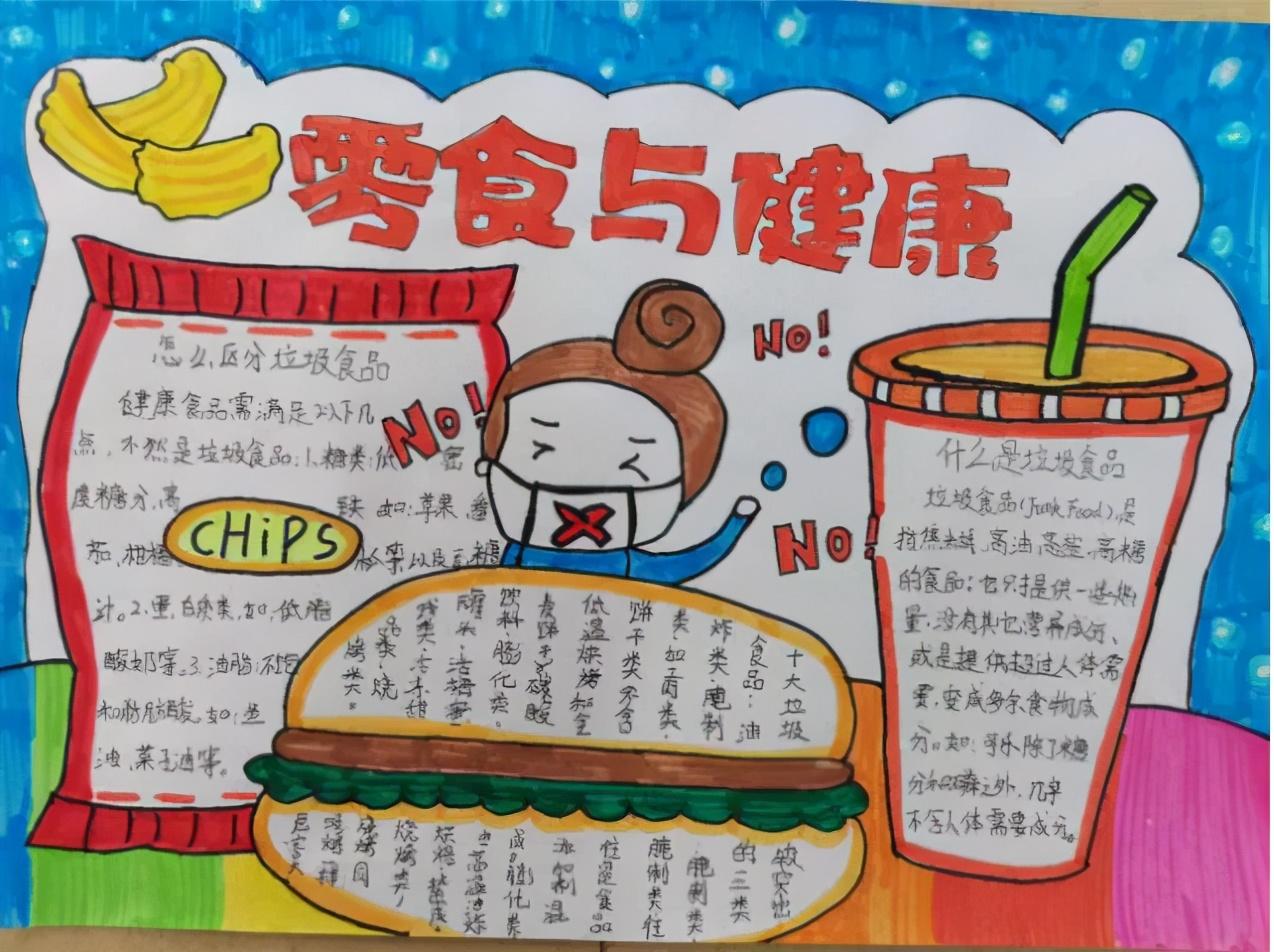 零食与健康
怎么区分垃圾食品
健康食品需满足以下几
点，不然是垃圾食品：1、糖类：低
度糖分，高
如：苹果、番
茄、柑橘
以及 糖
汁。2、蛋白类，如，低脂
酸奶等。3、油脂：不饱
和脂肪酸，如：
油，菜子油等。
CHiPS
No!
No!
No!
什么是垃圾食品
垃圾食品(Junk Food)，是
指 高油、高盐、高糖
的食品；它只提供一些热
量，没有其它营养成分、
或是提供超过人体需
要，变成多余食物成
分。如：可乐除了糖
分和磷之外，几乎
不含人体需要成分。
十大垃圾
食品：油
炸类、腌制
类、加工肉类、
饼干类（不含
低温烘烤和全
麦饼干）、碳酸
饮料、膨化类、
罐头、
类、冷冻甜
品类、烧
烤类。
较突出
的三类
腌制类
腌制类往
往是食品
添加剂混
成，膨化类
由高温油炸
烘焙 成。
烧烤类，
烧烤同
危害大